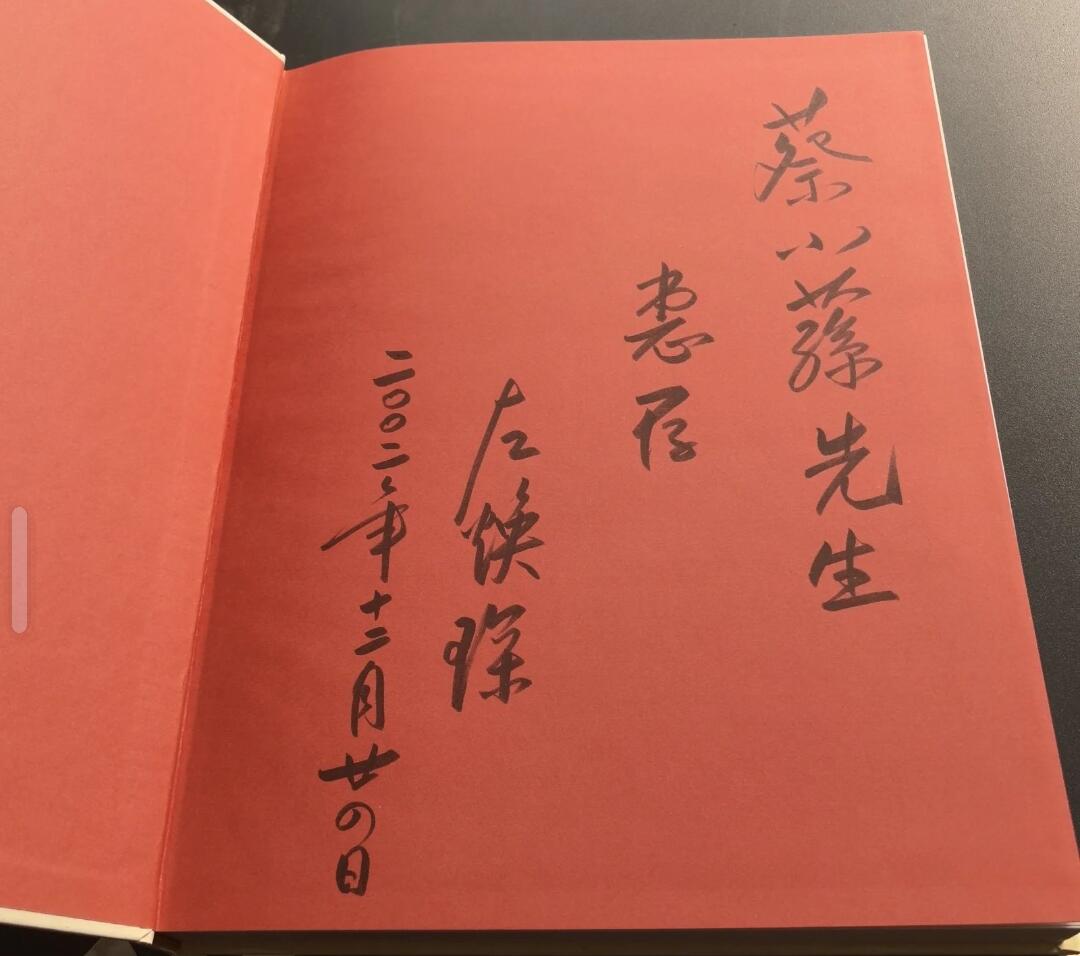 蔡小荪先生
惠存
左焕琛
二〇〇二年十二月廿四日